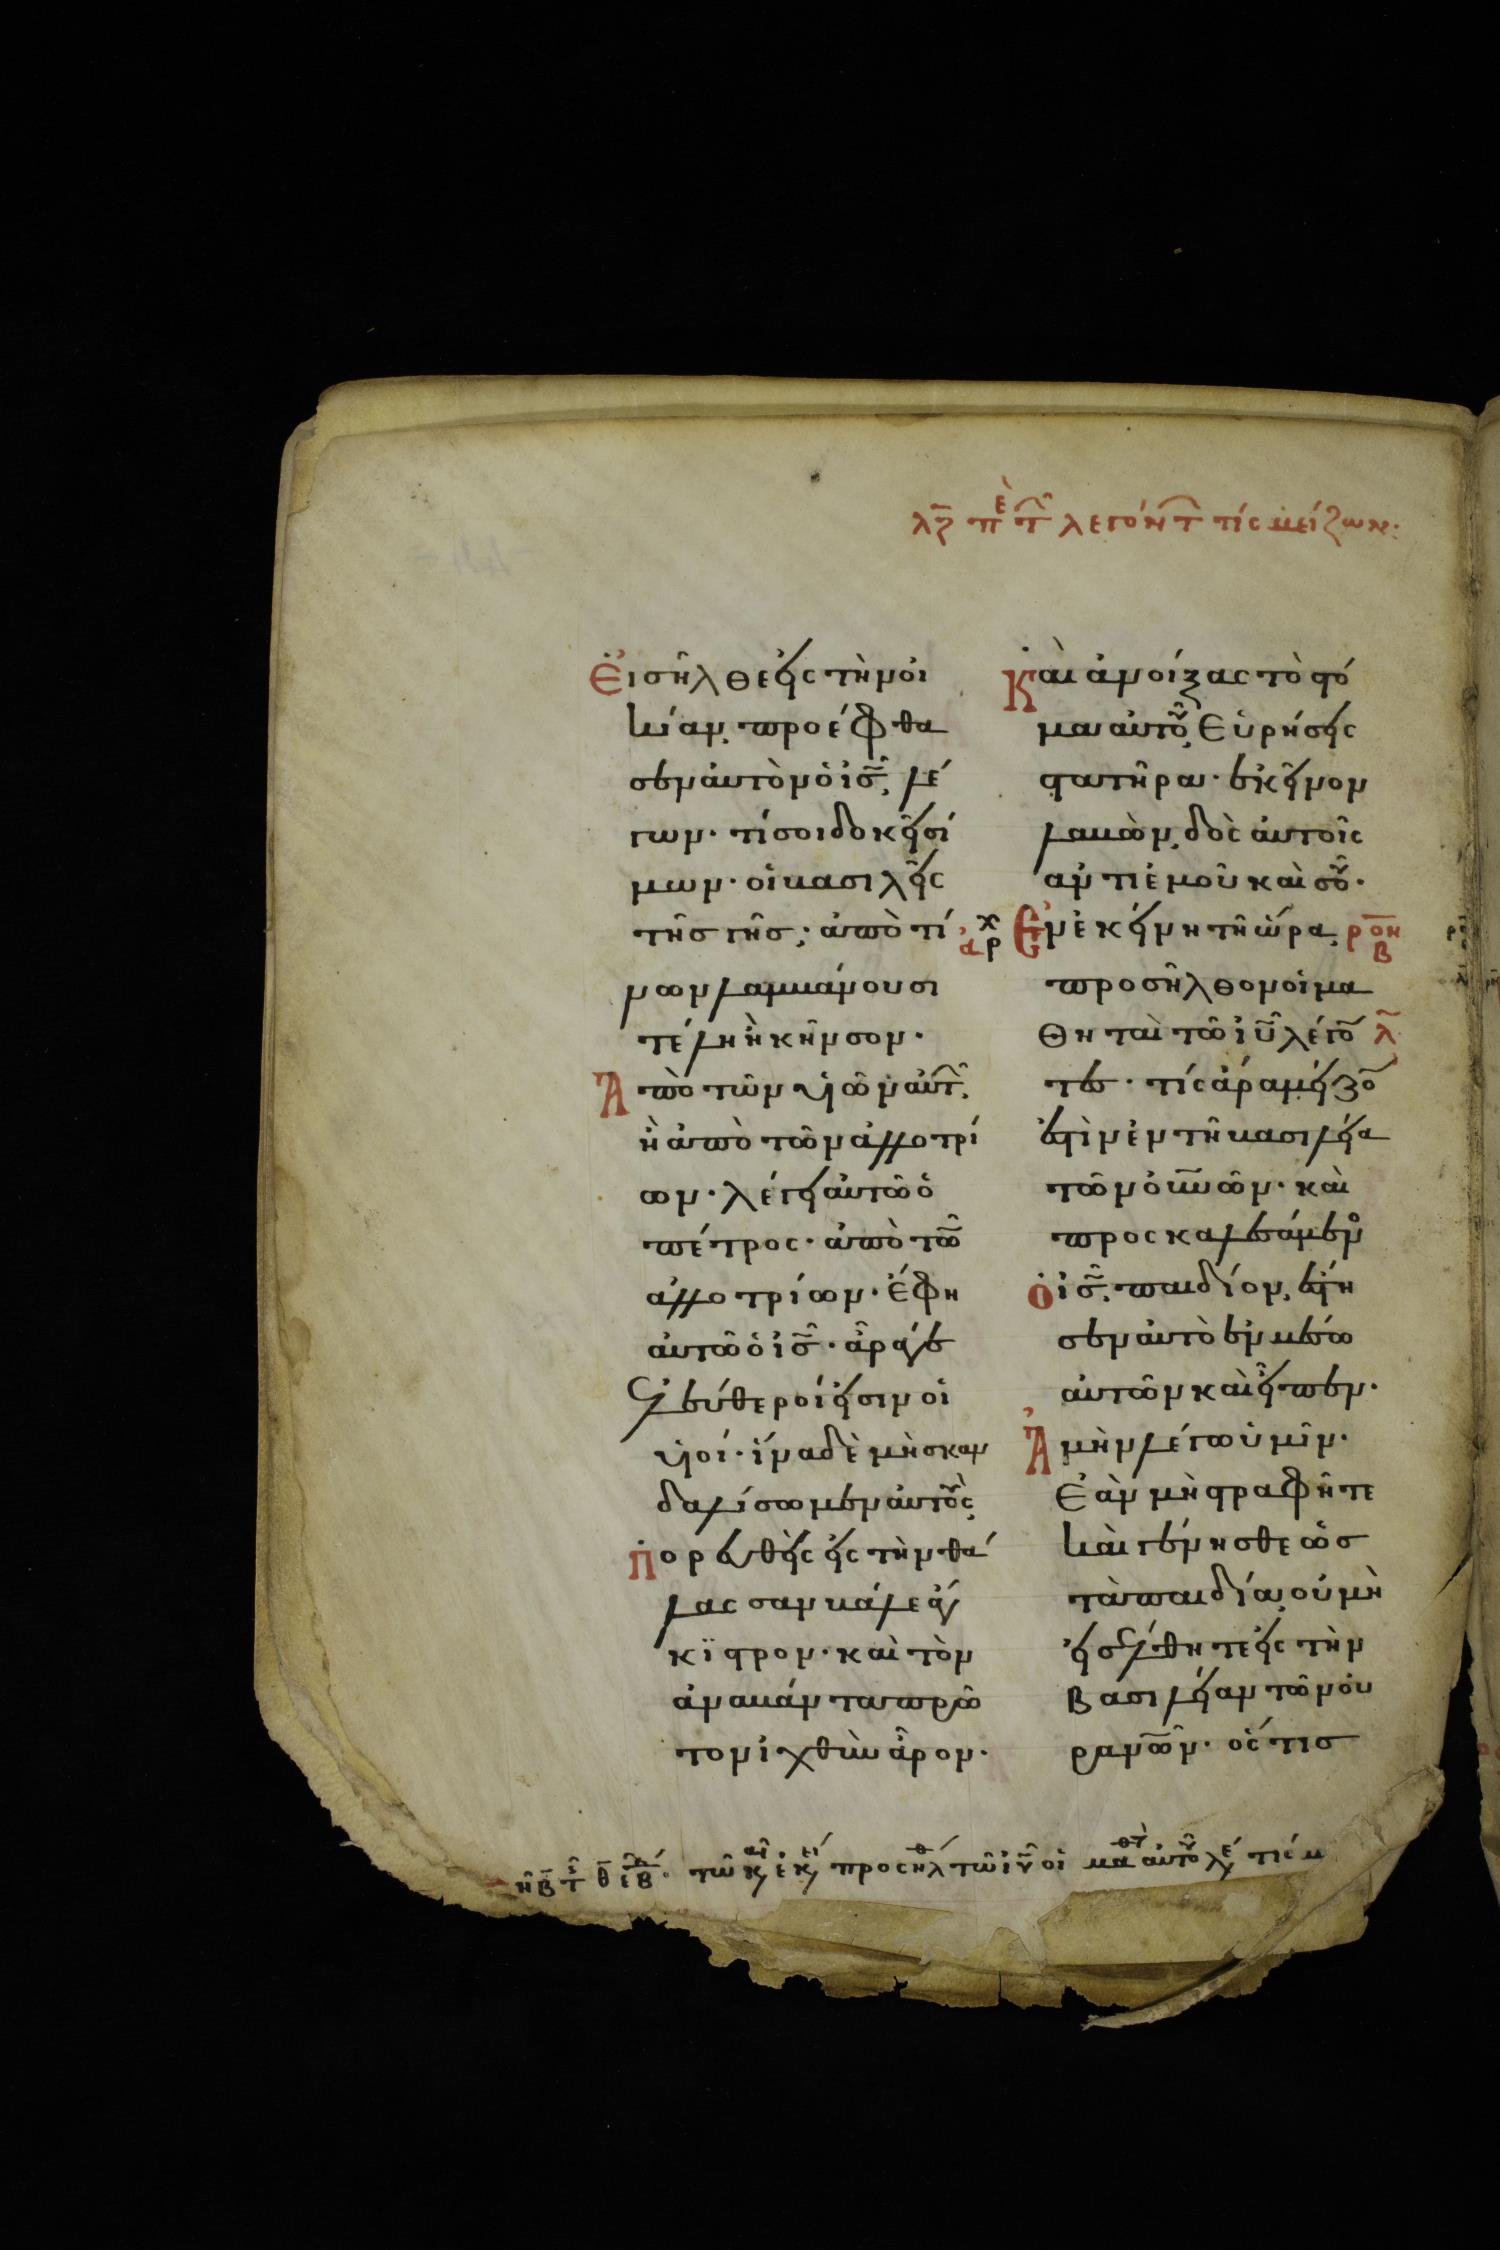 λζ πε τ λεγόντ τίς μείζων·
Εἰσῆλθεν εἰς τὴν οἰ
κίαν, προέφθα
σεν αὐτὸν ὁ ις, λέ
γων· τί σοι δοκεῖ σί
μων· οἱ βασιλεῖς
τῆς γῆς, ἀπὸ τί
νων λαμβάνουσι
τέλη ἢ κῆνσον·
Ἀπὸ τῶν υἱῶν αὐτ,
ἢ ἀπὸ τῶν ἀλλοτρί
ων· λέγει αὐτῶ ὁ
πέτρος· ἀπὸ τῶ
ἀλλοτρίων· ἔφη
αὐτῶ ὁ ις· ἄρα γε
ἐλεύθεροί εἰσιν οἱ
υἱοί· ἵνα δὲ μὴ σκαν
δαλίσωμεν αὐτοὺς,
Πορευθεὶς εἰς τὴν θά
λασσαν βάλε ἄγ
κιστρον· καὶ τὸν
ἀναβάντα πρῶ
τον ἰχθὺν ἆρον·
Καὶ ἀνοίξας τὸ στό
μα αὐτοῦ, εὑρήσεις
στατῆρα· ἐκεῖνον
λαβὼν, δὸς αὐτοῖς
ἀντὶ ἐμοῦ καὶ σοῦ·
ἀρχ Ἐν ἐκείνη τῆ ὥρα, ροη β
προσῆλθον οἱ μα
θηταὶ τῶ ιυ λέγο λ
τες· τίς ἄρα μείζο
ἐστὶν ἐν τῆ βασιλεία
τῶν οὐνῶν· καὶ
προσκαλεσάμενο
ὁ ις, παιδίον, ἔστη
σεν αὐτὸ ἐν μέσω
αὐτῶν καὶ εἶπεν·
Ἀμὴν λέγω ὑμῖν·
Ἐὰν μὴ στραφῆτε
καὶ γένησθε ὡς
τὰ παιδία, οὐ μὴ
εἰσέλθητε εἰς τὴν
βασιλείαν τῶν οὐ
ρανῶν· ὅστις
τῶ κ ἐκ προσηλθ τῶ ιυ οἱ μαθτ αὐτοῦ λε τίς μ